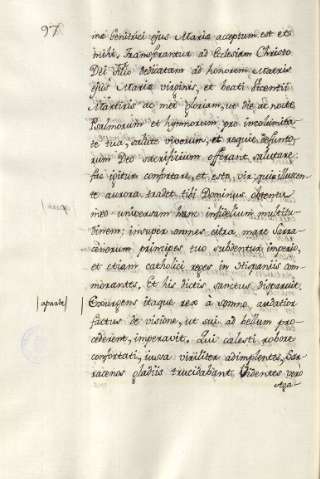 97
me Genitrici ejus Mariæ acceptum est et
mihi, transferantur ad Ecclesiam Christo
Dei Filio dedicatam ad honorem Matris
ejus Mariæ virginis, et beati Vicentii
Martiris ac mei gloriam, ut die ac nocte
Psalmorum et hymnorum pro incolumita-
te tua, salute vivorum, et requie defunto-
rum Deo sacrificium offerant salutare.
fac igitur confortare, et esto, vir, quia illuscen-
te aurora tradet tibi Dominus, obtentu
meo universam hanc infidelium multitu-
dinem; insuper omnes citra mare Sarra-
cenorum principes tuo subdentur imperio,
et etiam catholici reges in Hispaniis com-
morantes. Et his dictis, sanctus disparuit.
aparte
Expurgens itaque rex à somno, audatior
factus de visione, ut sui ad bellum pro-
cederent, imperavit. Qui celesti robore
confortati, jussa viriliter adimplentes, Sar-
racenos gladiis trucidabant. Videntes verò
Aga-